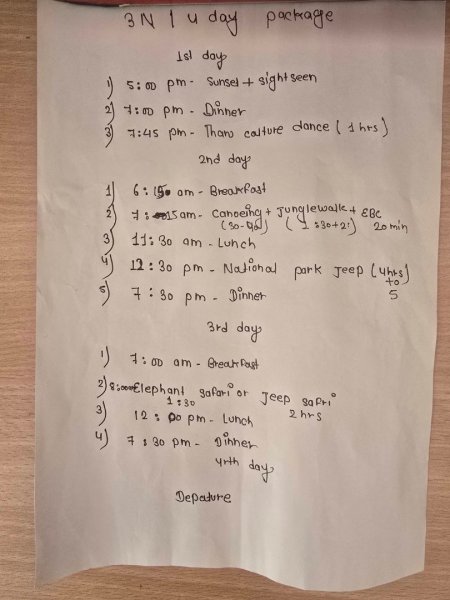 3N / 4 day package
1st day
1) 5:00 pm - Sunset + sightseen
2) 7:00 pm - Dinner
3) 7:45 pm - Tharu calture dance (1 hrs)
2nd day
1) 6: am - Breakfast
2) 7: 15 am - Canoeing + Junglewalk + EBC
(30-40) (1:30+2:) 20 min
3) 11:30 am - Lunch
4) 12:30 pm - National park Jeep (4hrs)
to
5) 7:30 pm - Dinner 5
3rd day
1) 7:00 am - Breakfast
2) 8:00 Elephant safari or Jeep safri
1:30 2 hrs
3) 12:00 pm - Lunch
4) 7:30 pm - Dinner
4rth day
Depature